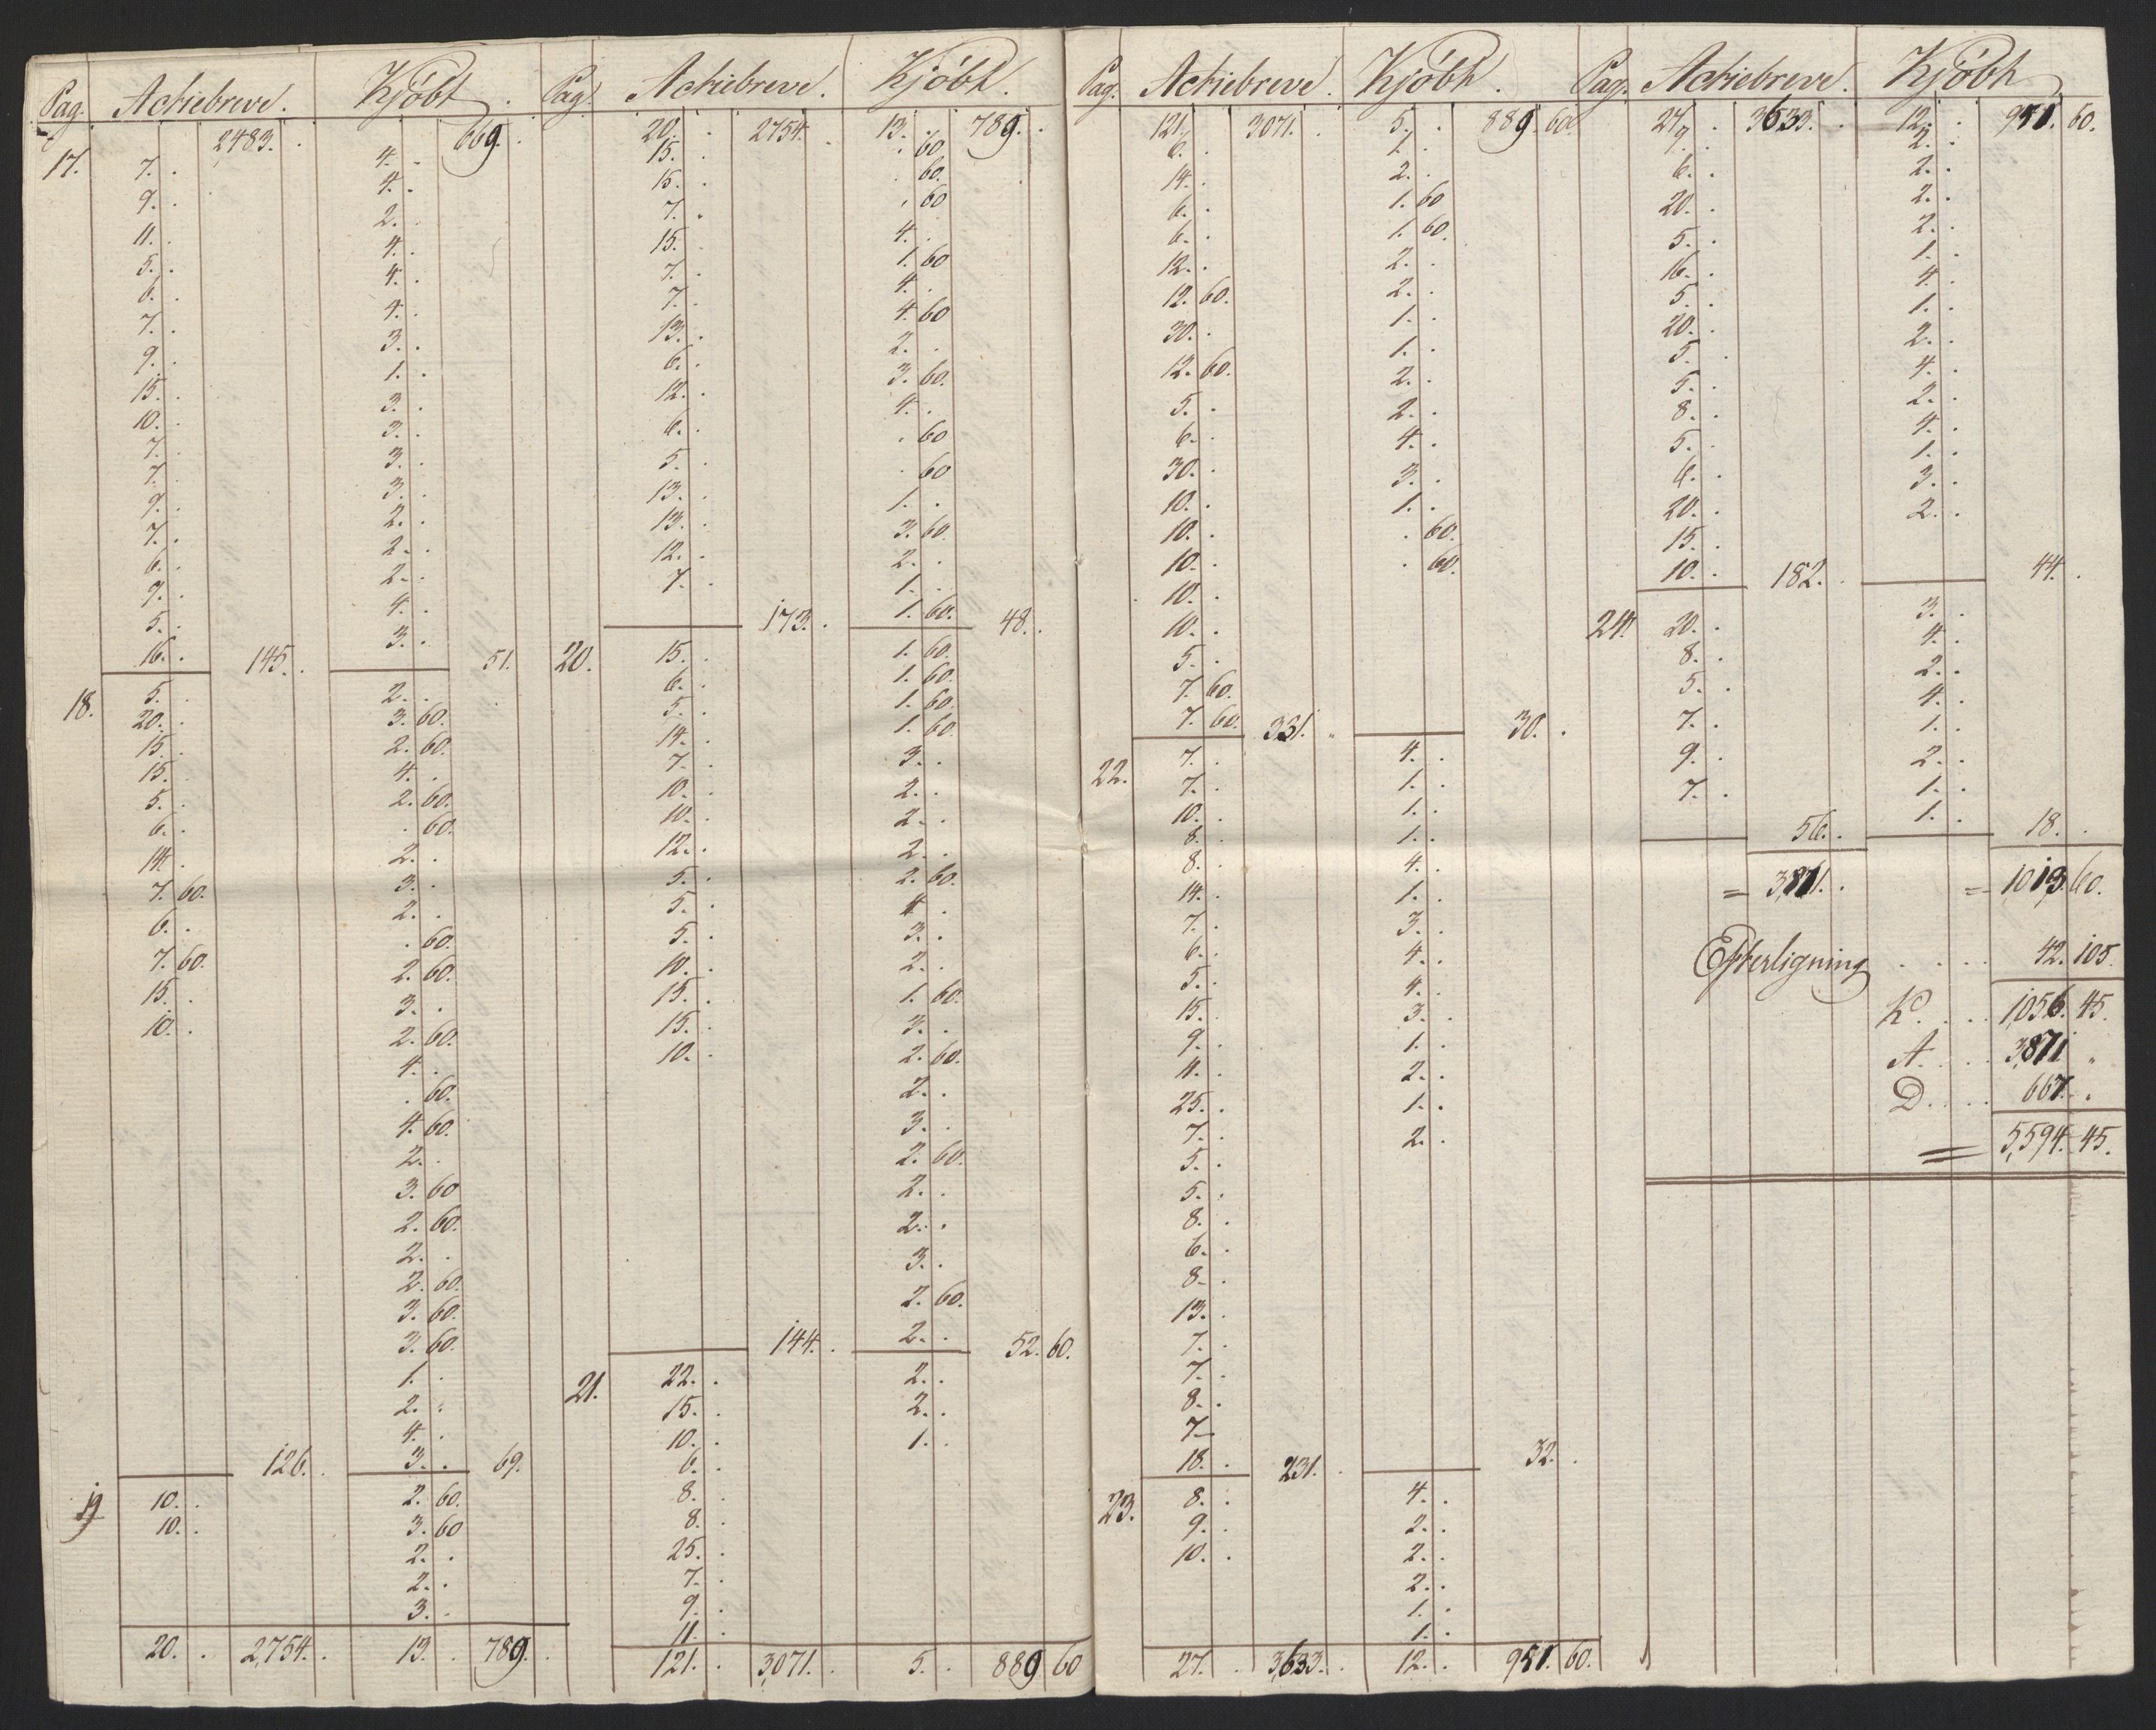 Pag. Actiebreve. Kjöbt.
2,483. . 669. .
17. 7. . 4. .
9. . 4. .
11. . 2. .
5. . 4. .
6. . 4. .
7. . 4. .
9. . 3. .
15. . 1. .
10. . 3. .
7. . 3. .
7. . 3. .
9. . 3. .
7. . 2. .
6. . 2. .
9. . 2. .
5. . 4. .
16. . 145. . 3. . 51.
18. 5. . 2. .
20. . 3. 60.
15. . 2. 60.
15. . 4. .
5. . 2. 60.
6. . . 60.
14. . 2. .
7. 60. 3. .
6. . 2. .
7. 60. . 60.
15. . 2. 60.
10. . 3. .
2. 60.
4. .
. 60.
4. 60.
2. .
3. 60
2. 60.
2. .
2. 60.
3. 60.
3. 60.
1. .
2. .
4. .
126. . 3. . 69.
19 10. . 2. 60.
10. . 3. 60
2. .
2. .
3. .
20. . 2,754. . 13. . 789. .
Pag. Actiebreve. Kjöbt.
20. . 2754. . 13. . 789. .
15. . . 60
15. . . 60.
7. . . 60
15. . 4. .
7. . 1. 60
7. . 4. .
13. . 4. 60
6. . 2. .
12. . 3. 60.
6. . 4. .
5. . . 60
13. . . 60
13. . 1. .
12. . 3. 60.
7. . 2. .
1. .
173. . 1. 60. 48. .
20. 15. . 1. 60.
6. . 1. 60.
5. . 1. 60.
14. . 1. 60.
7. . 3. .
10. . 2. .
10. . 2. .
12. . 2. .
5. . 2. 60.
5. . 4 .
5. . 3. .
10. . 2. .
15. . 1. 60.
15. . 3. .
10. . 2. 60.
2. .
3. .
2. 60.
2. .
2. .
3. .
2. 60.
144. . 2. . 52. 60.
21. 22. . 2. .
15. . 2. .
10. . 1. .
6. .
8. .
8. .
25. .
7. .
9. .
11. .
121. . 3,071. . 5. . 889 60
Pag. Actiebreve. Kjöbt.
121. . 3071. . 5. . 889. 60.
6. . 1. .
14. . 2. .
6. . 1. 60
6. . 1. 60.
12. . 2. .
12. 60. 2. .
30. . 1. .
12. 60. 1. .
5. . 2. .
6. . 2. .
30. . 4. .
10. . 3. .
10. . 1. .
10. . . 60.
10. . . 60.
10. .
5. .
7. 60.
7. 60. 331. . 30. .
22. 7. . 4. .
7. . 1. .
10. . 1. .
8. . 1. .
8. . 4. .
14. . 1. .
7. . 3. .
6. . 4. .
5. . 4. .
15. . 3. .
9. . 1. .
11. . 2. .
25. . 1. .
7. . 2. .
5. .
5. .
8. .
6. .
8. .
13. .
7. .
7. .
8. .
7.
18. . 231. . 32. .
23. 8. . 4. .
9. . 2. .
10. . 2. .
2. .
1. .
1. .
27. . 3,633. . 12. . 951. 60.
Pag. Actiebreve. Kjöbt
27. . 3633. . 12. . 951. 60.
7. . 2. .
6. . 2. .
20. . 2. .
5. . 2. .
16. . 1. .
5. . 4. .
20. . 1. .
5. . 2. .
5. . 4. .
8. . 2. .
5. . 4. .
6. . 1. .
20. . 3. .
15. . 2. .
10. . 182. . 44. .
24. 20. . 3. .
8. . 4. .
5. . 2. .
7. . 4. .
9. . 1. .
7. . 2. .
1. .
56. . 1. . 18. .
= 3,871. . = 1,013. 60.
Efterligning . . . . 42. 105.
K. . . . 1,056. 45.
A. . . . 3,871 "
D. . . . 667. "
= 5,594. 45.